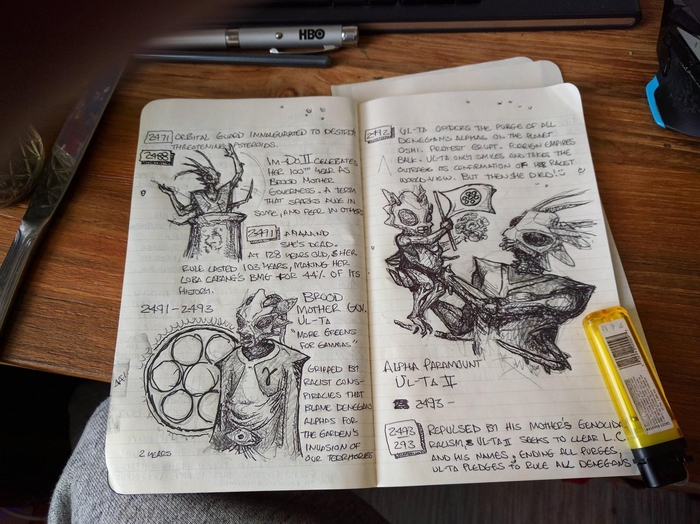 HBO
2471 ORBITAL GUARD INNAUGURATED TO DESTROY
THREATENING ASTEROIDS.
2488
IM-DO II CELEBRATES
HER 100TH YEAR AS
BROOD MOTHER
GOVERNESS. A TERM
THAT SPARKS AWE IN
SOME, AND FEAR IN OTHERS
2491 AAAAAND
SHE'S DEAD.
AT 128 YEARS OLD, & HER
RULE LASTED 103 YEARS, MAKING HER
LOBA CABANG'S BMG FOR 44% OF ITS
HISTORY.
2491-2493
BROOD
MOTHER GOV.
UL-TA
"MORE GREENS
FOR GAMMAS"
γ
GRIPPED BY
RACIST CONS-
PIRACIES THAT
BLAME DENEGAN
ALPHAS FOR
THE GARDEN'S
INVASION OF
OUR TERRITORIES
2 YEARS
2492 UL-TA ORDERS THE PURGE OF ALL
DENEGANS ALPHAS ON THE PLANET
OSHI. PROTEST ERUPT. FOREIGN EMPIRES
BALK. UL-TA ONLY SMILES AND TAKES THE
OUTRAGE AS CONFIRMATION OF HER RACIST
WORLD-VIEW. BUT THEN SHE DIED! :)
ALPHA PARAMOUNT
UL-TA II
2493 -
2493
293
REPULSED BY HIS MOTHER'S GENOCIDAL
RACISM, UL-TA II SEEKS TO CLEAR L.C.
AND HIS NAMES, ENDING ALL PURGES,
UL-TA PLEDGES TO RULE ALL DENEGANS